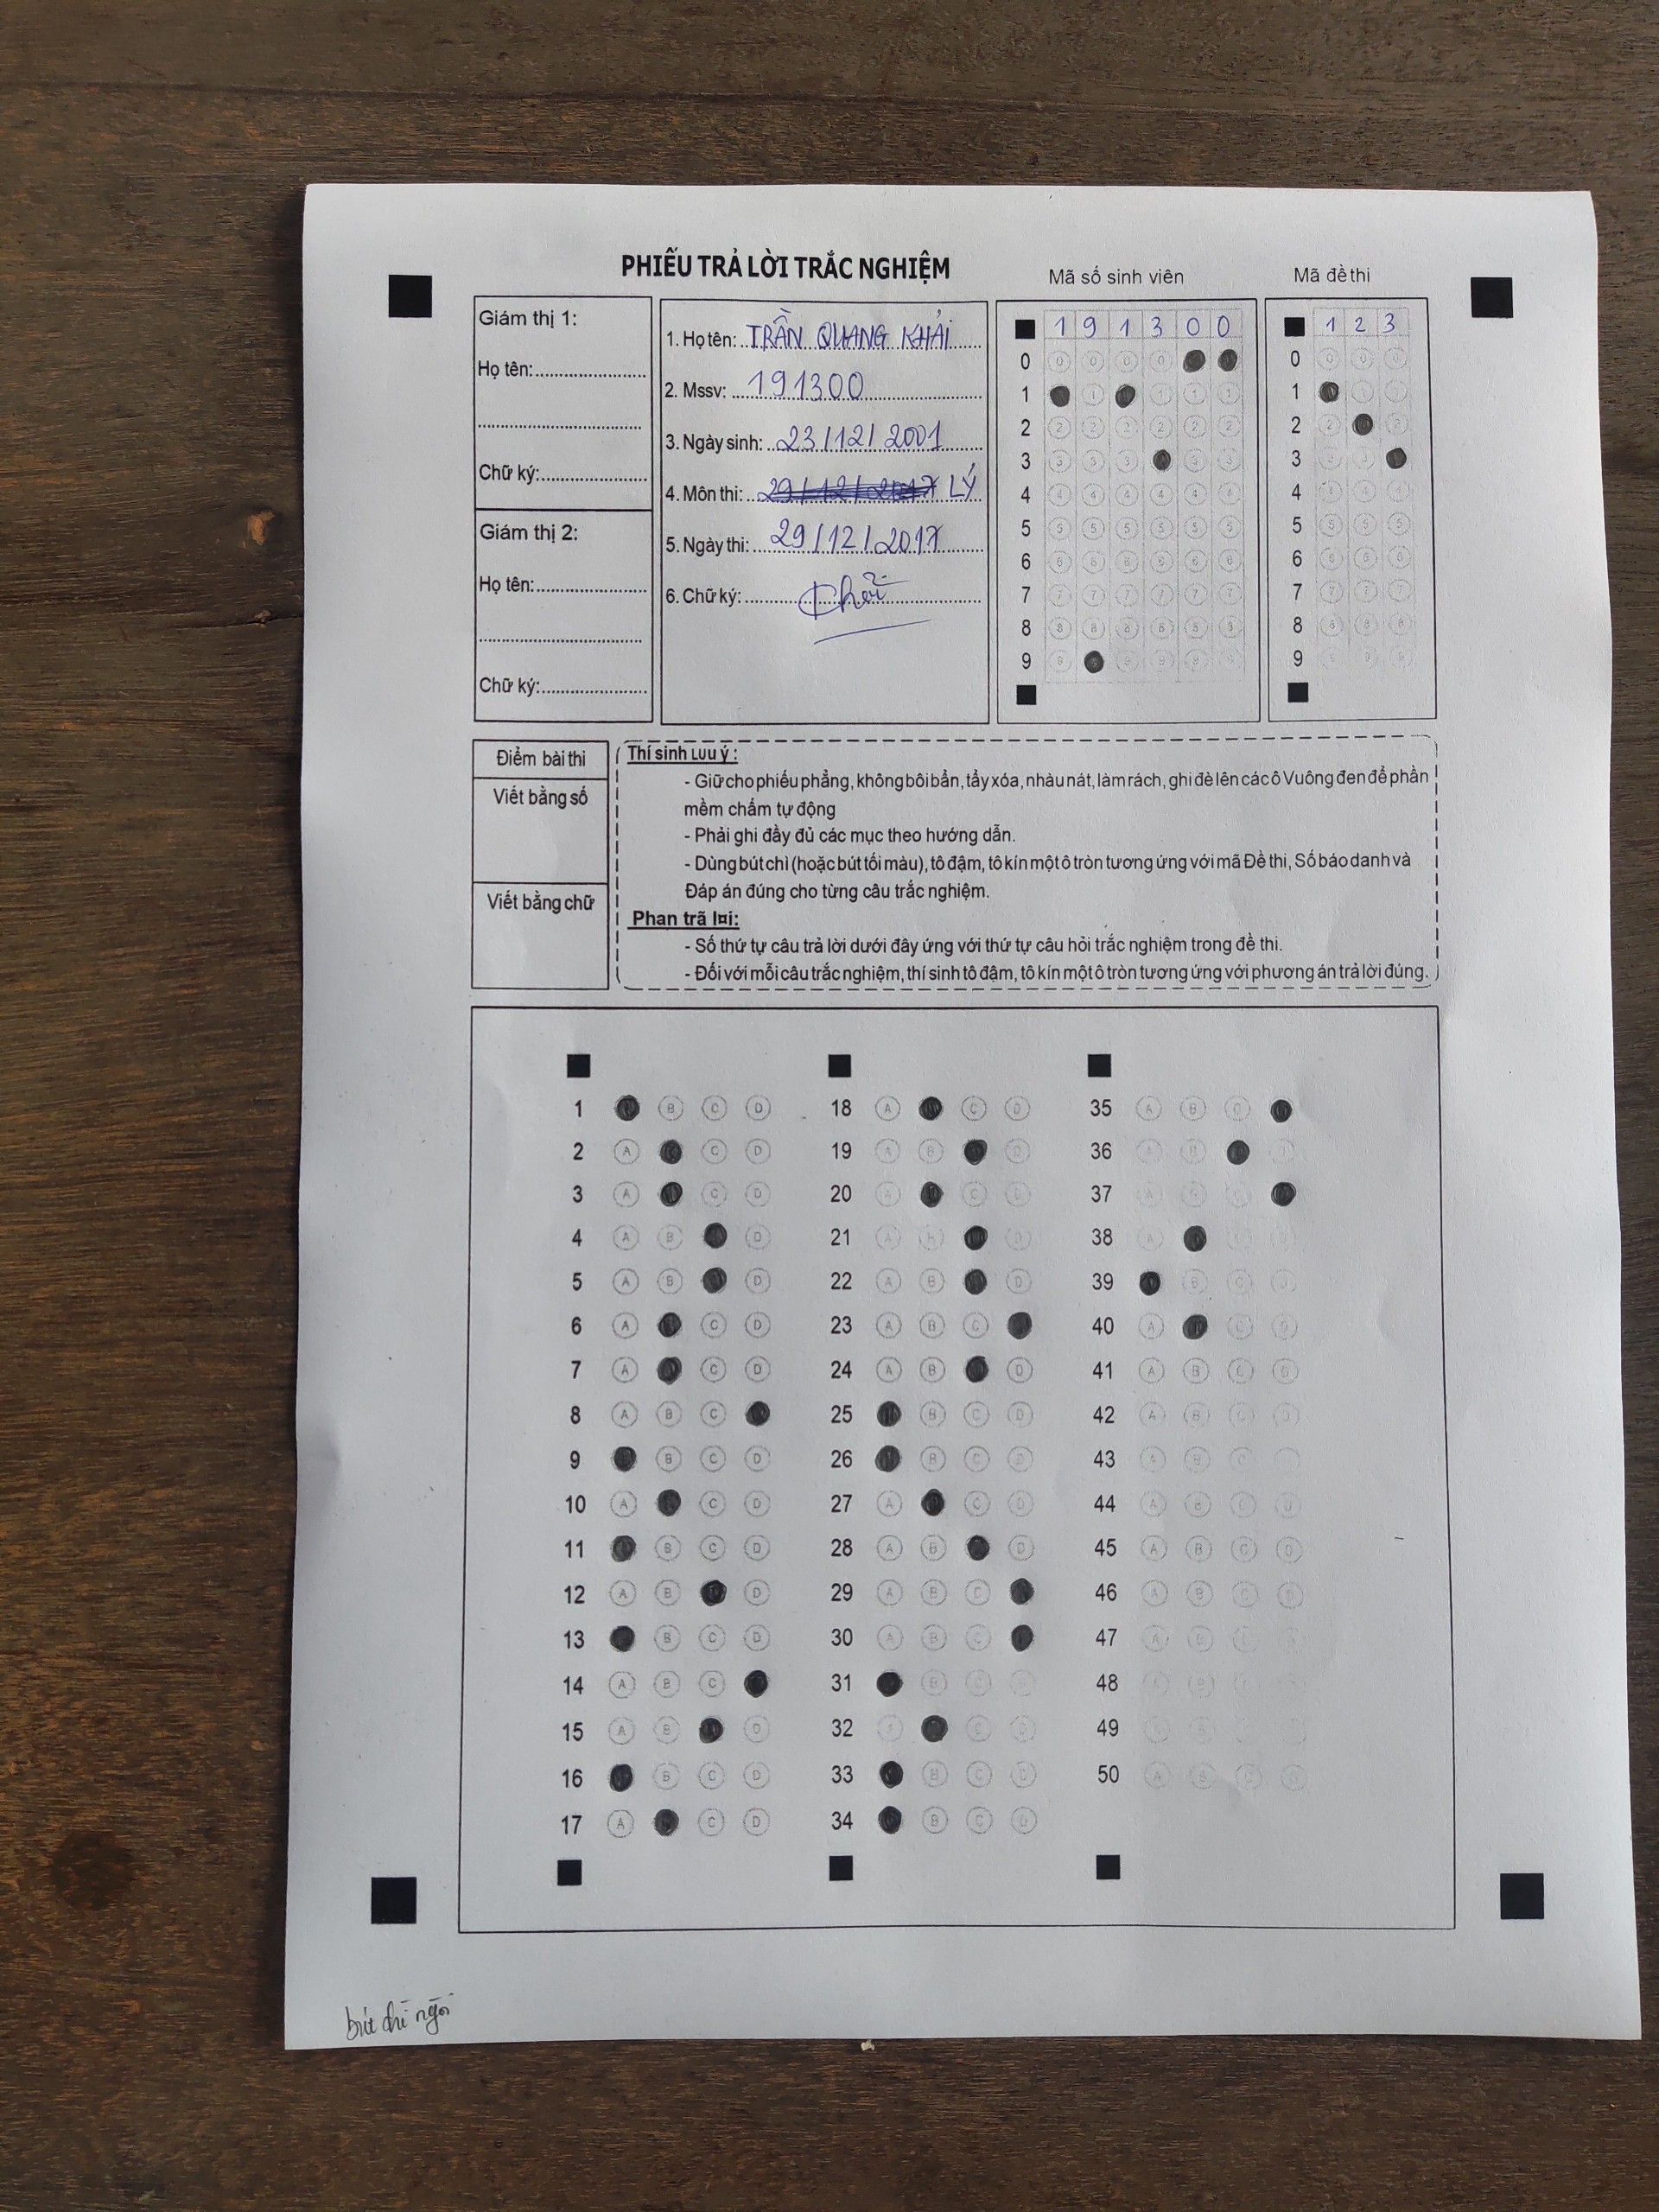 PHIẾU TRẢ LỜI TRẮC NGHIỆM
Mã số sinh viên
Mã đề thi
Giám thị 1:
Họ tên:
Chữ ký:
Giám thị 2:
Họ tên:
Chữ ký:
1. Họ tên: TRẦN QUANG KHẢI
2. Mssv: 191300
3. Ngày sinh: 23/12/2001
4. Môn thi: LÝ
5. Ngày thi: 29/12/2017
6. Chữ ký:
1 9 1 3 0 0
0
1
2
3
4
5
6
7
8
9
1 2 3
0
1
2
3
4
5
6
7
8
9
Điểm bài thi
Viết bằng số
Viết bằng chữ
Thí sinh Lưu ý :
- Giữ cho phiếu phẳng, không bôi bẩn, tẩy xóa, nhàu nát, làm rách, ghi đè lên các ô Vuông đen để phần
mềm chấm tự động
- Phải ghi đầy đủ các mục theo hướng dẫn.
- Dùng bút chì (hoặc bút tối màu), tô đậm, tô kín một ô tròn tương ứng với mã Đề thi, Số báo danh và
Đáp án đúng cho từng câu trắc nghiệm.
Phan trã l¤i:
- Số thứ tự câu trả lời dưới đây ứng với thứ tự câu hỏi trắc nghiệm trong đề thi.
- Đối với mỗi câu trắc nghiệm, thí sinh tô đậm, tô kín một ô tròn tương ứng với phương án trả lời đúng.
1 B C D
2 A C D
3 A C D
4 A B D
5 A B D
6 A C D
7 A C D
8 A B C
9 B C D
10 A C D
11 B C D
12 A B D
13 B C D
14 A B C
15 A B D
16 B C D
17 A C D
18 A C D
19 A B D
20 A C D
21 A B D
22 A B D
23 A B C
24 A B D
25 B C D
26 B C D
27 A C D
28 A B D
29 A B C
30 A B C
31 B C D
32 C D
33 B C D
34 B C D
35 A B C
36 A B
37 A B
38 A
39 B C D
40 A C D
41 A B C D
42 A B C D
43 B C
44 A B C D
45 A B C D
46 A B C D
47 A B
48
49
50 A B
bút chì ngòi